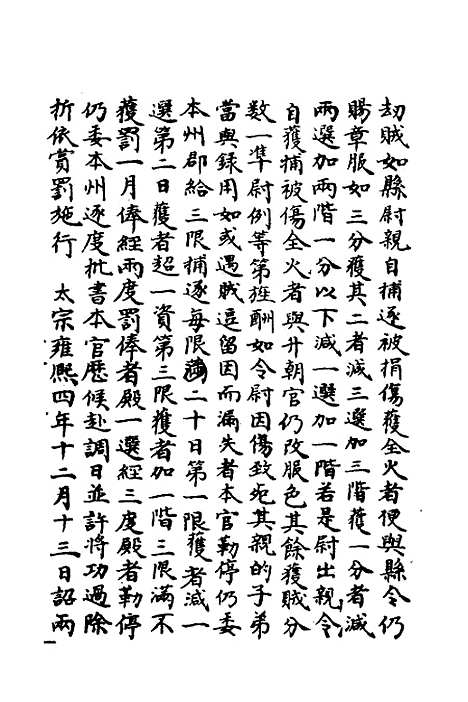 刼賊如縣尉親自捕逐被捐傷獲全火者便與縣令仍
賜章服如三分獲其二者減三選加三階獲一分者減
兩選加兩階一分以下減一選加一階若是尉出親令
自獲捕被傷全火者與升朝官仍改服色其餘獲賊分
數一準尉例等第旌酬如令尉因傷致死其親的子弟
當與錄用如或遇賊逗留因而漏失者本官勒停仍委
本州郡給三限捕逐每限二十日第一限獲者減一
選第二日獲者超一資第三限獲者加一階三限滿不
獲罰一月俸經兩度罰俸者殿一選經三度殿者勒停
仍委本州逐度批書本官歷候赴調日並許將功過除
折依賞罰施行　太宗雍熙四年十二月十三日詔兩